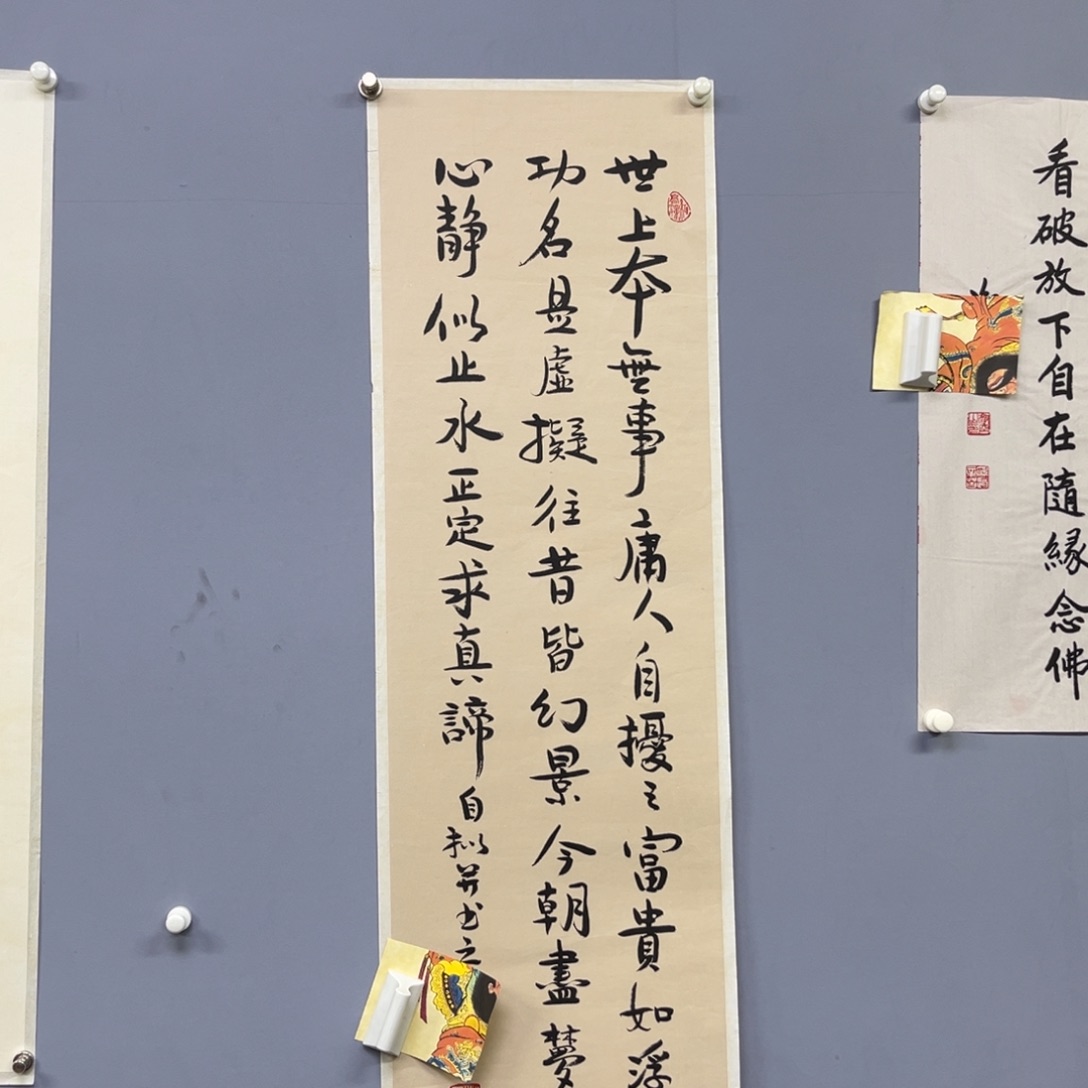 世上本無事庸人自擾之富貴如浮
功名是虛擬往昔皆幻景今朝盡夢
心静似止水正定求真諦自拟并书之
看破放下自在隨緣念佛